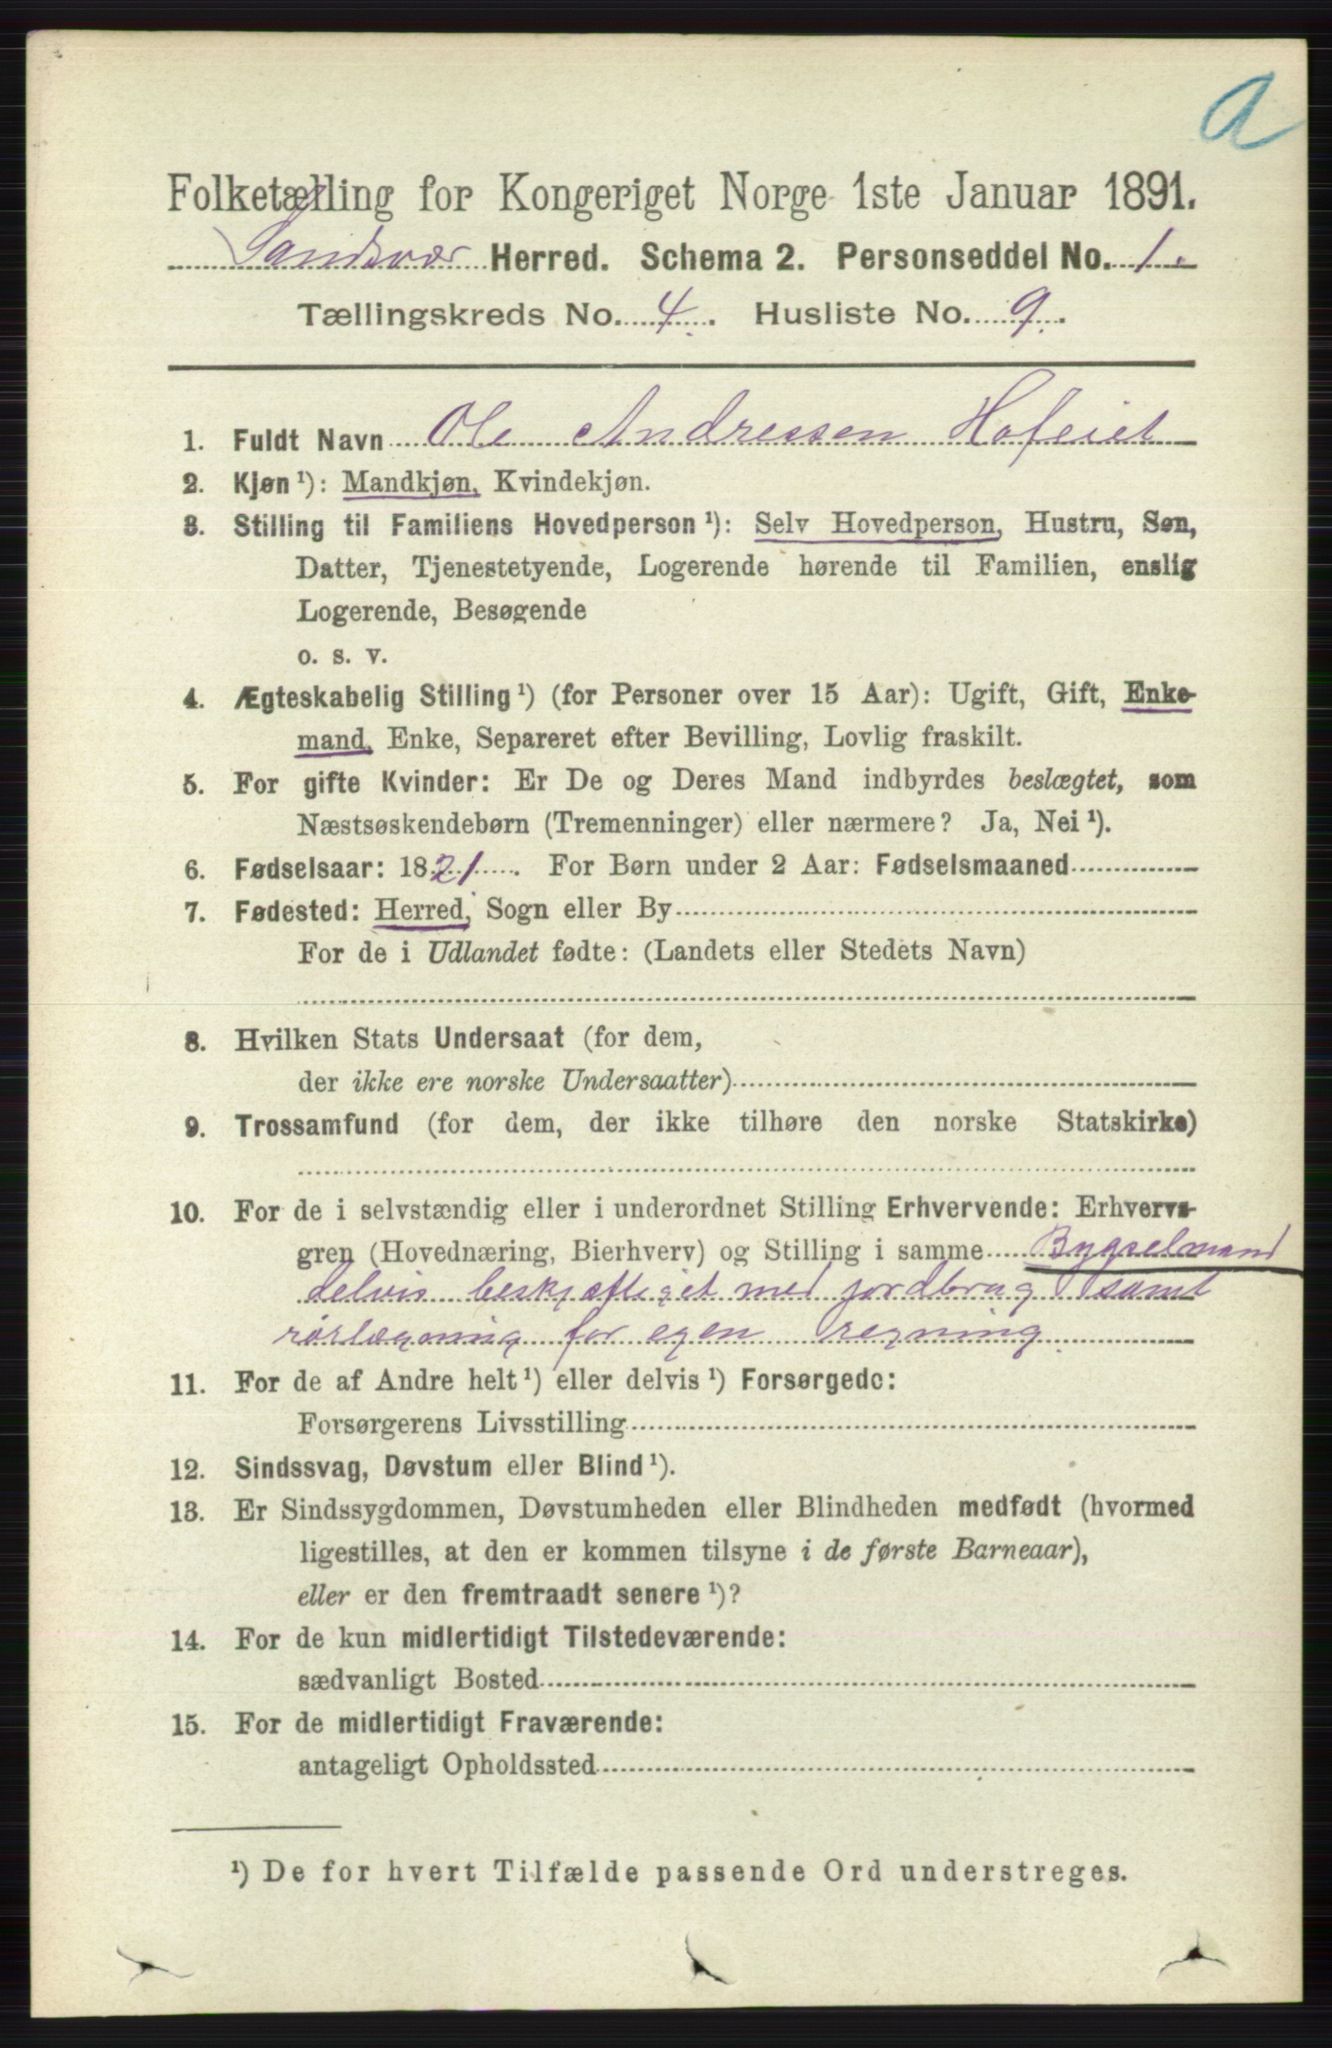 a
Folketælling for Kongeriget Norge 1ste Januar 1891.
Sandsvær Herred. Schema 2. Personseddel No. 1.
Tællingskreds No. 4. Husliste No. 9.
1. Fuldt Navn Ole Andressen Hofeiet
2. Kjøn¹): Mandkjøn, Kvindekjøn.
3. Stilling til Familiens Hovedperson¹): Selv Hovedperson, Hustru, Søn,
Datter, Tjenestetyende, Logerende hørende til Familien, enslig
Logerende, Besøgende
o. s. v.
4. Ægteskabelig Stilling¹) (for Personer over 15 Aar): Ugift, Gift, Enke-
mand, Enke, Separeret efter Bevilling, Lovlig fraskilt.
5. For gifte Kvinder: Er De og Deres Mand indbyrdes beslægtet, som
Næstsøskendebørn (Tremenninger) eller nærmere? Ja, Nei¹).
6. Fødselsaar: 1821. For Børn under 2 Aar: Fødselsmaaned
7. Fødested: Herred, Sogn eller By
For de i Udlandet fødte: (Landets eller Stedets Navn)
8. Hvilken Stats Undersaat (for dem,
der ikke ere norske Undersaatter)
9. Trossamfund (for dem, der ikke tilhøre den norske Statskirke)
10. For de i selvstændig eller i underordnet Stilling Erhvervende: Erhvervs-
gren (Hovednæring, Bierhverv) og Stilling i samme Bygselmand
delvis beskjæftiget med jordbrug samt
rørlægning for egen regning
11. For de af Andre helt¹) eller delvis¹) Forsørgede:
Forsørgerens Livsstilling
12. Sindssvag, Døvstum eller Blind¹).
13. Er Sindssygdommen, Døvstumheden eller Blindheden medfødt (hvormed
ligestilles, at den er kommen tilsyne i de første Barneaar),
eller er den fremtraadt senere¹)?
14. For de kun midlertidigt Tilstedeværende:
sædvanligt Bosted
15. For de midlertidigt Fraværende:
antageligt Opholdssted
¹) De for hvert Tilfælde passende Ord understreges.